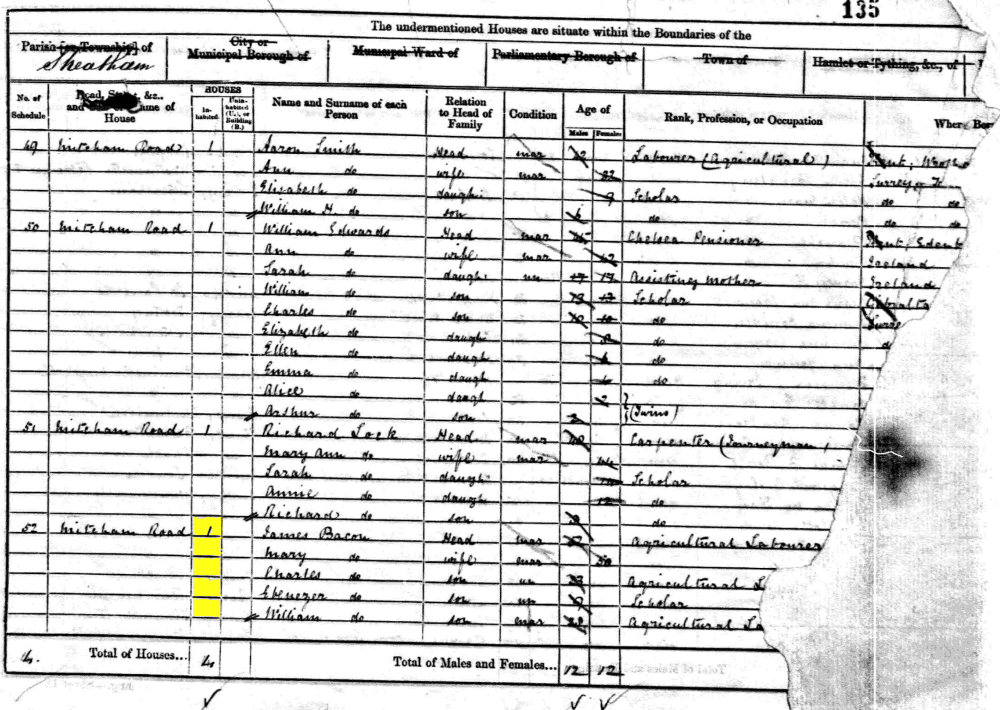 135
The undermentioned Houses are situate within the Boundaries of the
Parish [or Township] of
Streatham
City or Municipal Borough of
Municipal Ward of
Parliamentary Borough of
Town of
Hamlet or Tything, &c., of
No. of Schedule
Road, &c., and Name of House
HOUSES
In-habited
Unin-habited (U.), or Building (B.)
Name and Surname of each Person
Relation to Head of Family
Condition
Age of
Males
Females
Rank, Profession, or Occupation
Where Bor
49 Mitcham Road 1 Aaron Smith Head mar Labourer (Agricultural) Kent,
Ann do wife mar 32 Surrey
Elizabeth do daugh 9 Scholar do do
William H. do son 6 do do do
50 Mitcham Road 1 William Edwards Head mar Chelsea Pensioner Kent, Edenb
Ann do wife mar 42 Ireland
Sarah do daugh un 17 17 Assisting Mother Ireland
William do son 13 Scholar Gibralta
Charles do son 10 10 do Surre
Elizabeth do daugh 8 do d
Ellen do daugh 6 do
Emma do daugh do
Alice do daugh 2 } (Twins)
Arthur do son 2
51 Mitcham Road 1 Richard Lock Head mar Carpenter (Journeyman)
Mary Ann do wife mar 44
Sarah do daugh Scholar
Annie do daugh 12 do
Richard do son do
52 Mitcham Road 1 James Bacon Head mar Agricultural Labourer
Mary do wife mar 50
Charles do son un 23 Agricultural L
Ebenezer do son un Scholar
William do son mar 28 Agricultural La
4. Total of Houses... 4 Total of Males and Females... 12 12